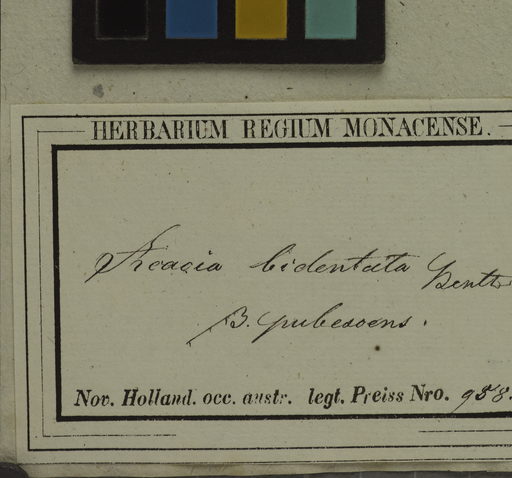 HERBARIUM REGIUM MONACENSE.
Acacia bidentata Benth
β. pubescens.
Nov. Holland. occ. austr. legt. Preiss Nro. 958.